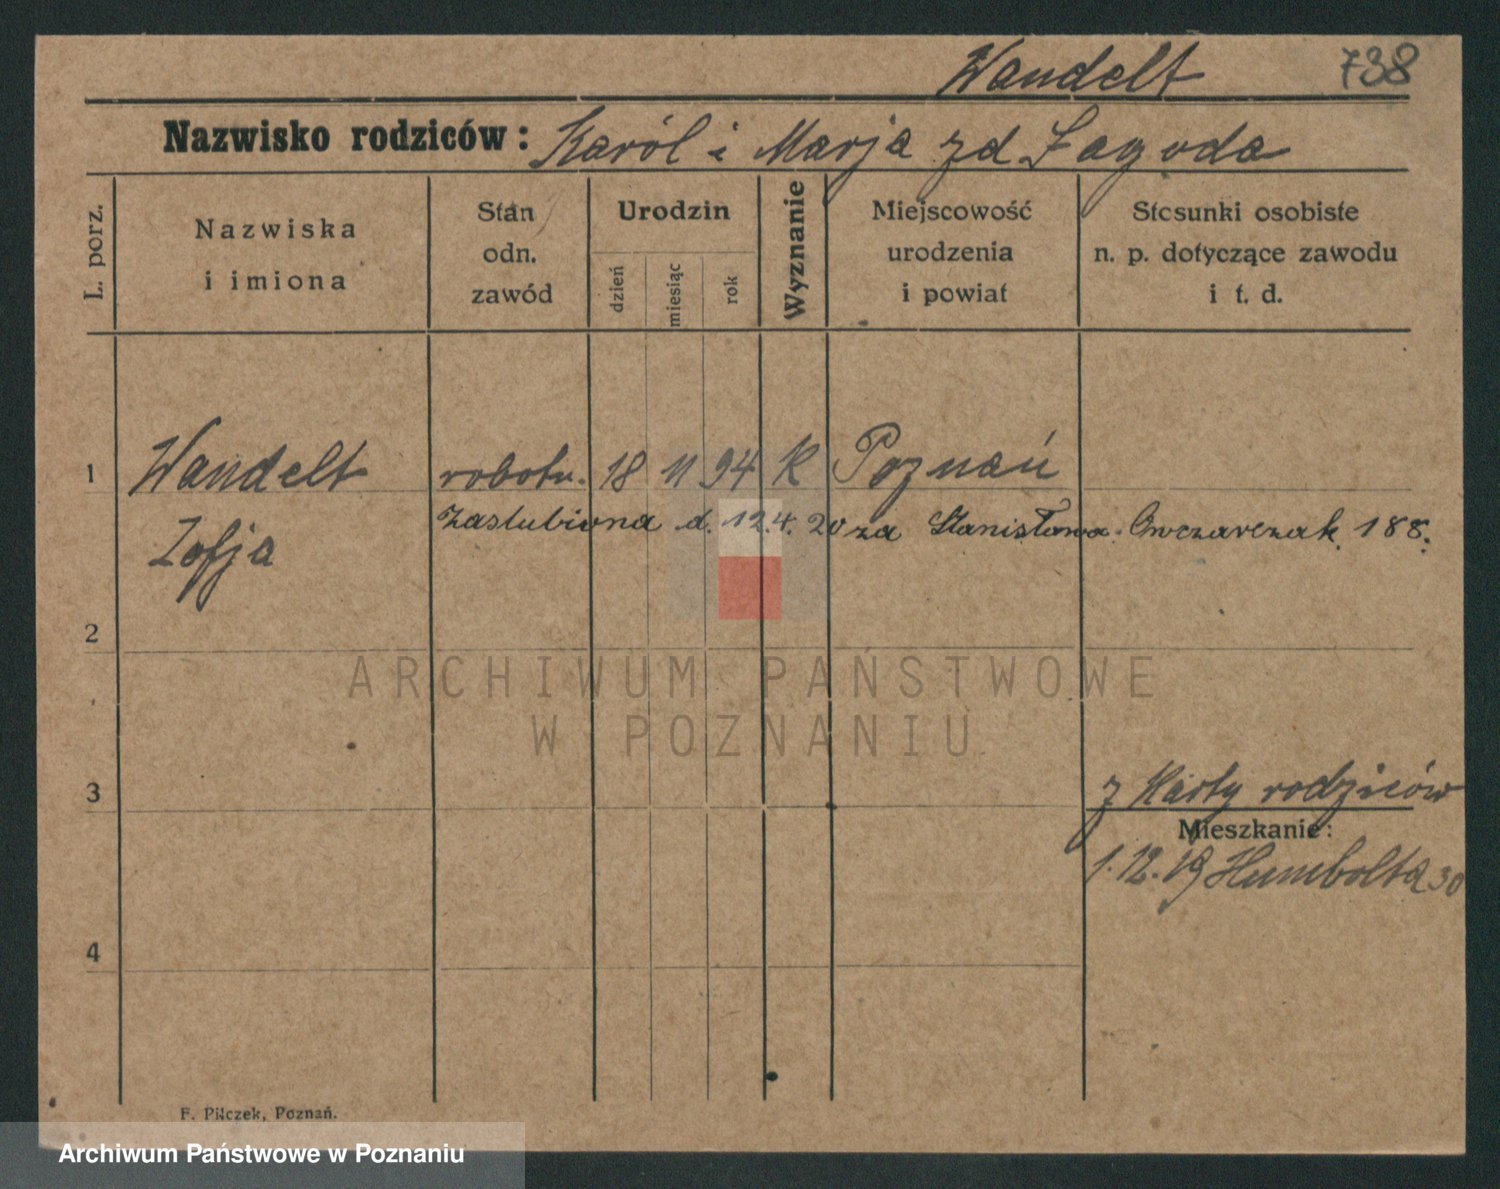 Wandelt 738
Nazwisko rodziców: Karól i Marja zd Łagoda
L. porz.
Nazwiska
i imiona
Stan
odn.
zawód
Urodzin
dzień
miesiąc
rok
Wyznanie
Miejscowość
urodzenia
i powiat
Stosunki osobiste
n. p. dotyczące zawodu
i t. d.
1 Wandelt robotn. 18 11 94 K Poznań
Zaslubiona d. 12.4.20 za Stanisława Owczarczak 188.
Zofja
2
ARCHIWUM PAŃSTWOWE
W POZNANIU
3
z Karty rodziców
Mieszkanie:
1.12.19 Humbolta 30
4
F. Pilczek, Poznań.
Archiwum Państwowe w Poznaniu